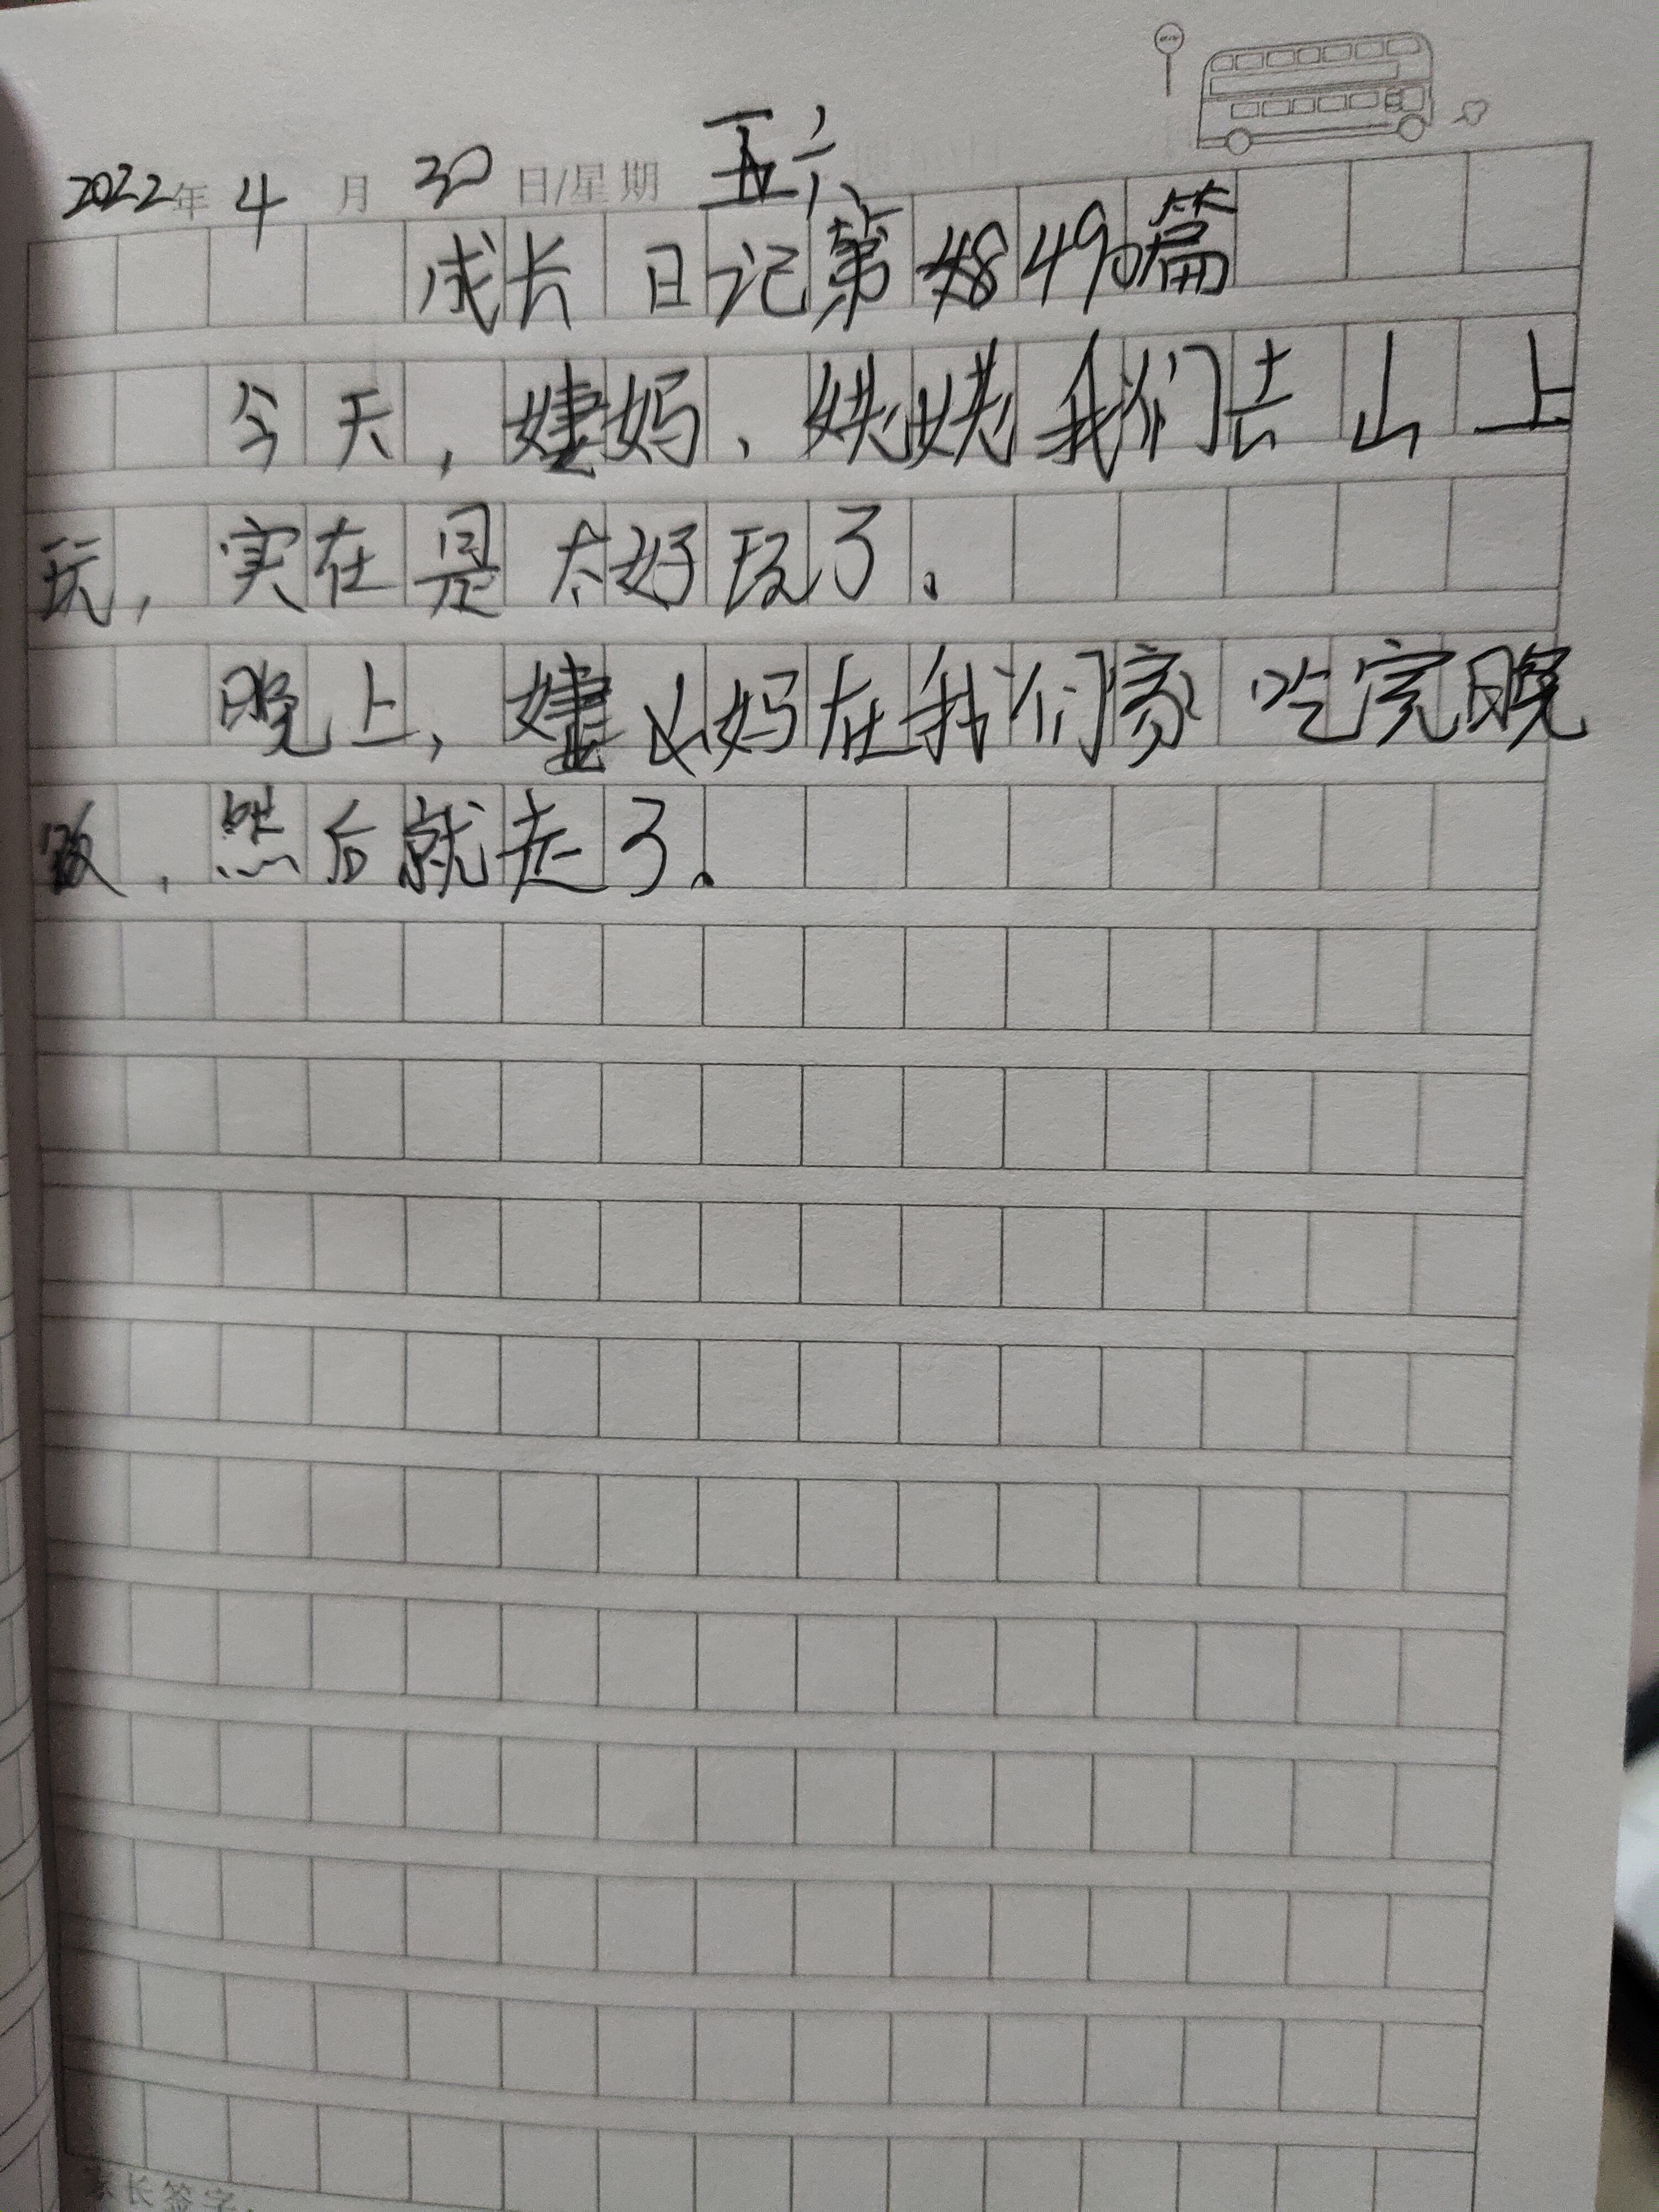 2022年4月30日/星期六
成长日记第490篇
今天，婕妈、姥姥我们去山上
玩，实在是太好玩了。
晚上，婕妈在我们家吃完晚
饭，然后就走了。
家长签字